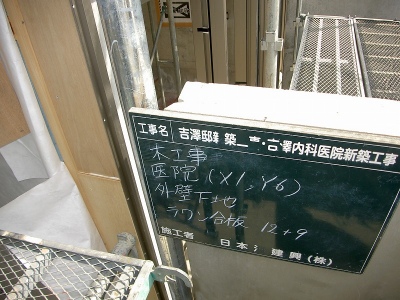 工事名 吉澤邸新築工事・吉澤内科医院新築工事
木工事
医院 (X1, Y6)
外壁下地
ラワン合板 12+9
施工者 日本 建興(株)